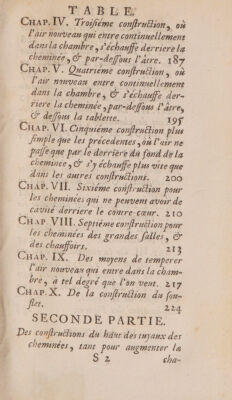 TABLE.
CHAP. IV. Troisiéme construction, où
l'air nouveau qui entre continuellement
dans la chambre, s'échauffe derriere la
cheminée, & par-dessous l'âtre. 187
CHAP. V. Quatriéme construction, où
l'air nouveau entre continuellement
dans la chambre, & s'échauffe der-
riere la cheminée, par-dessous l'âtre,
& dessous la tablette. 195
CHAP. VI. Cinquiéme construction plus
simple que les précedentes, où l'air ne
passe que par le derriére du fond de la
cheminée, & s'y échauffe plus vite que
dans les autres constructions. 200
CHAP. VII. Sixiéme construction pour
les cheminées qui ne peuvent avoir de
cavité derriere le contre-cœur. 210
CHAP. VIII. Septiéme construction pour
les cheminées des grandes salles, &
des chauffoirs. 213
CHAP. IX. Des moyens de temperer
l'air nouveau qui entre dans la cham-
bre, à tel degré que l'on veut. 217
CHAP. X. De la construction du souf-
flet. 224
SECONDE PARTIE.
Des constructions du haut des tuyaux des
cheminées, tant pour augmenter la
S 2 cha-